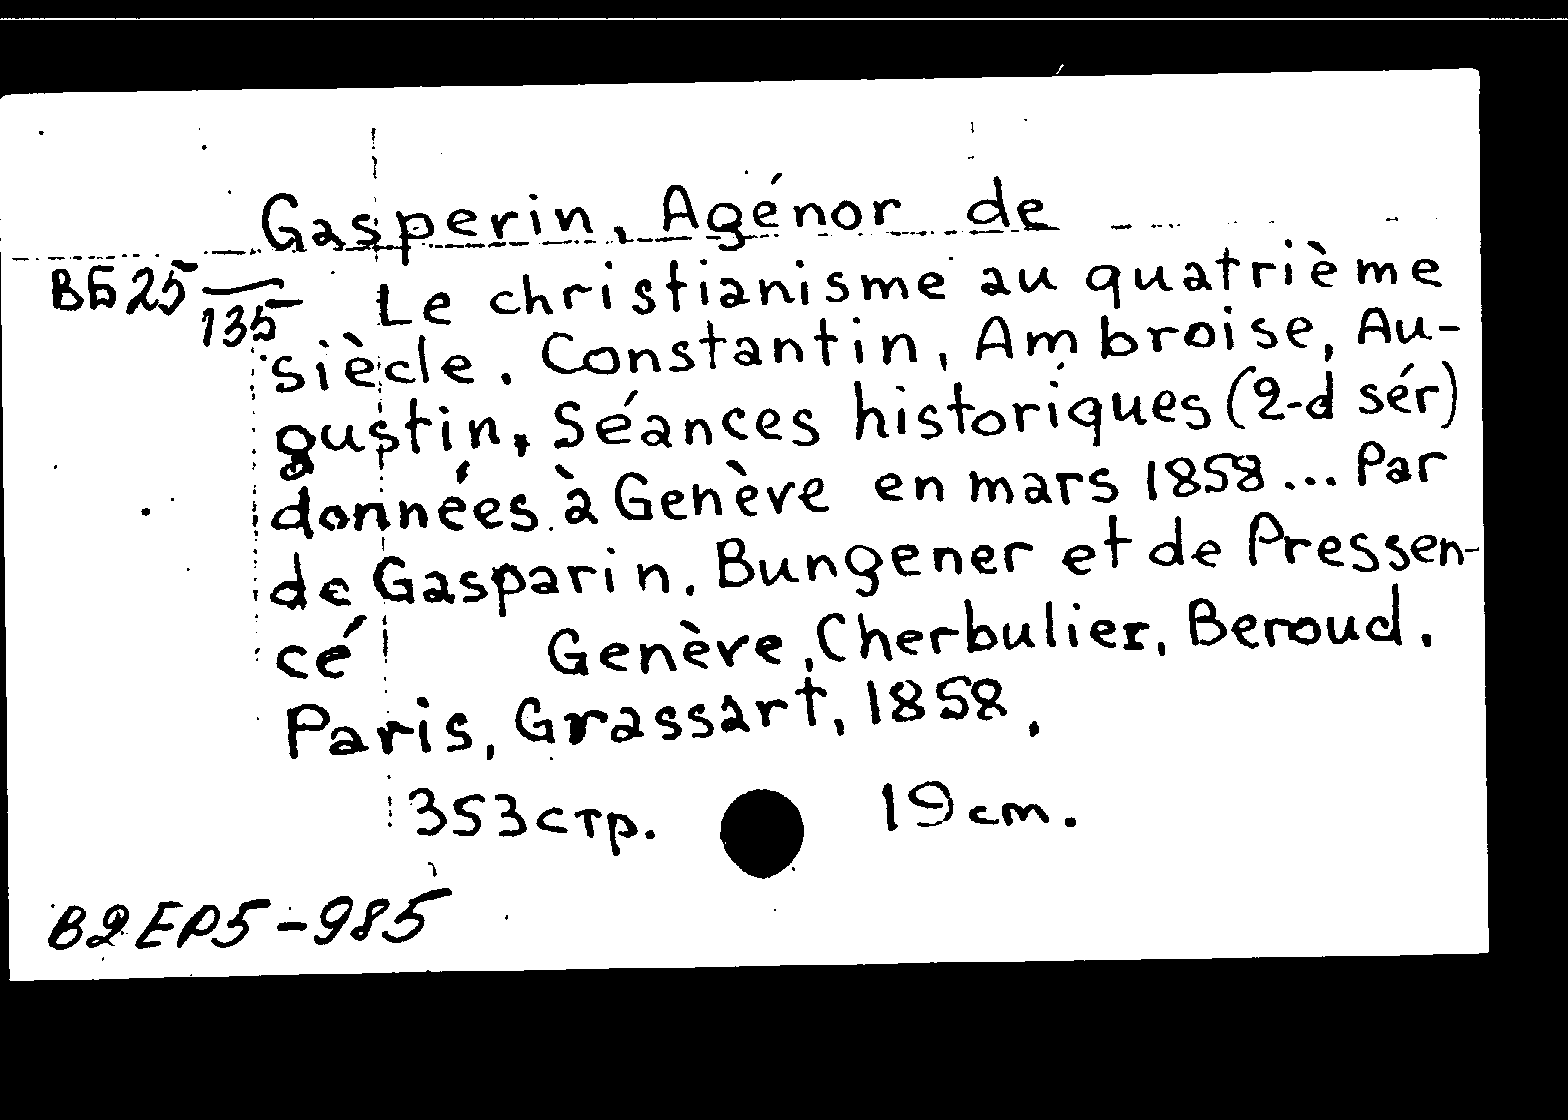 Gasperin, Agénor de
ВБ 25/135 Le christianisme au quatrième
siècle. Constantin, Ambroise, Au-
gustin, Séances historiques (2-d sér)
données à Genève en mars 1858... Par
de Gasparin, Bungener et de Pressen-
cé Genève, Cherbulier, Beroud.
Paris, Grassart, 1858,
353 стр. 19 cm.
B2EP5-985